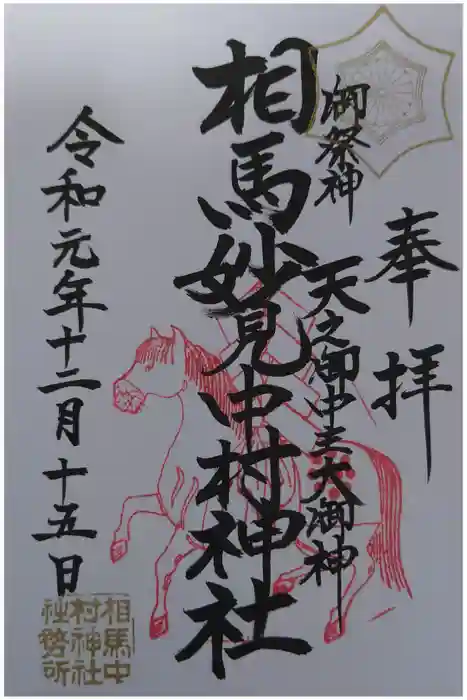 奉拝
御祭神
天之御中主大御神
相馬妙見中村神社
令和元年十二月十五日
相馬中
村神社
社務所